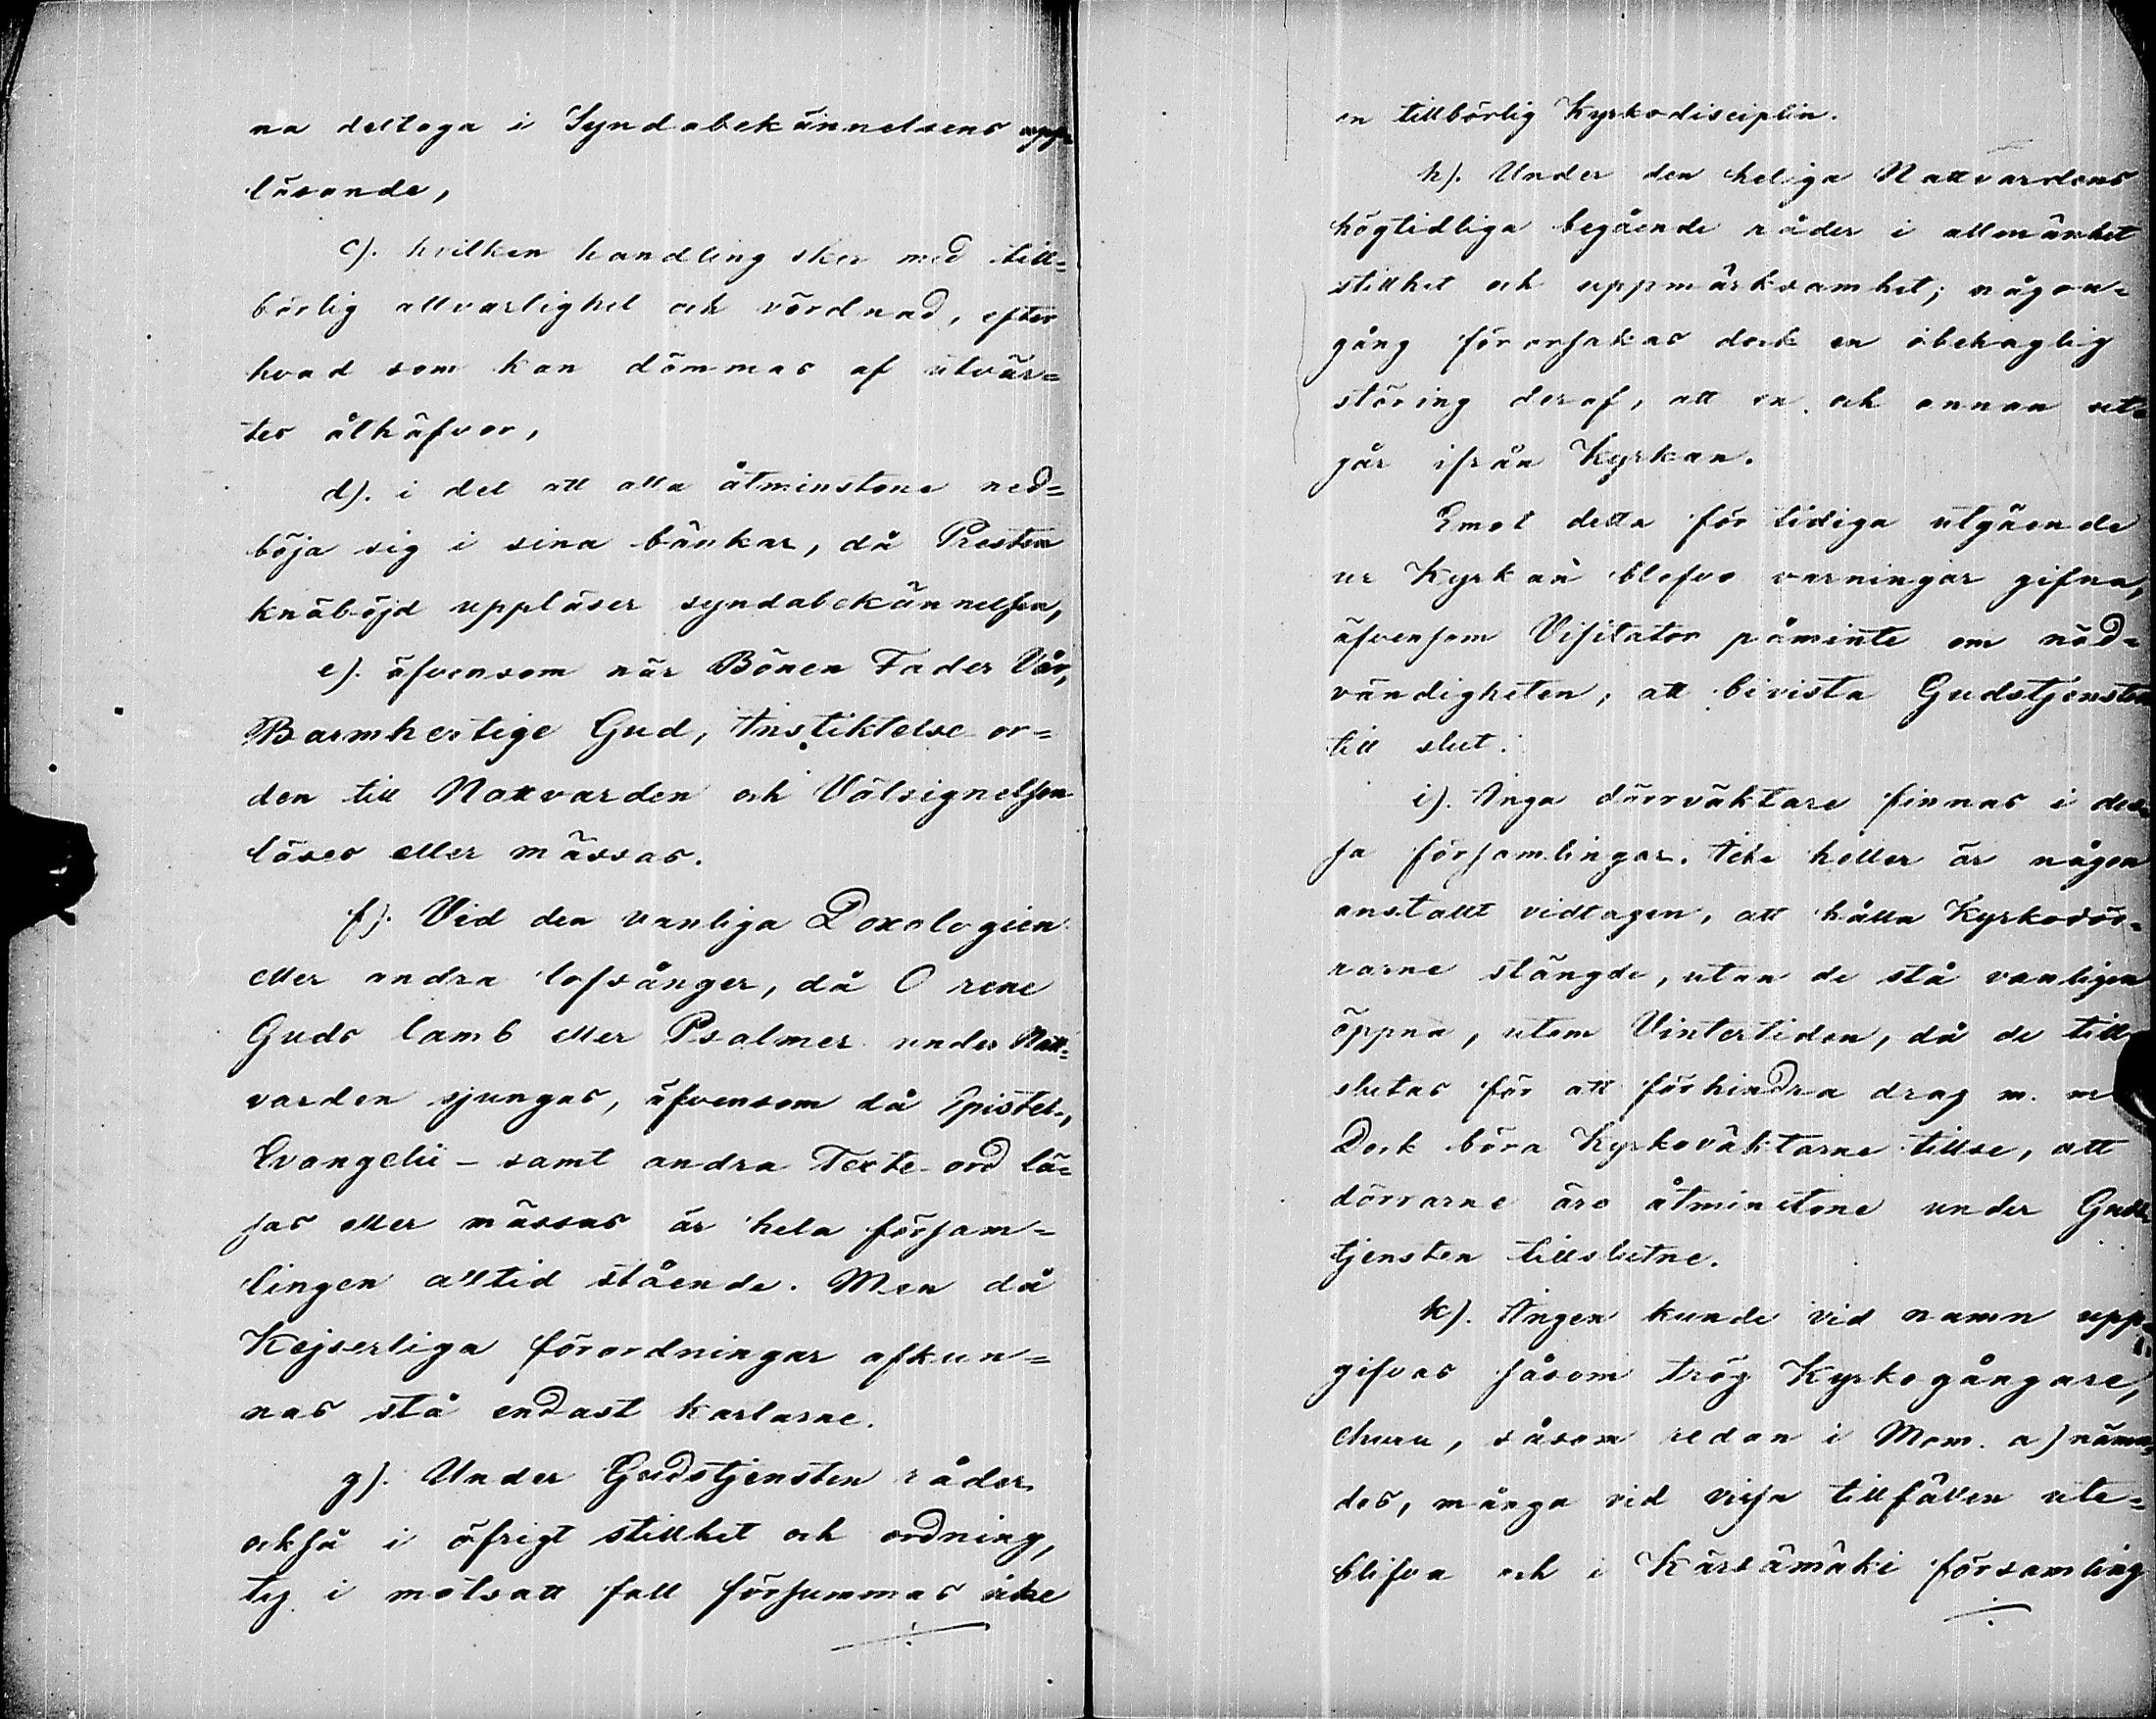 na deltaga i Syndabekännelsens upp=
läsande,
c). hvilken handling sker med till=
börlig allvarlighet och vördnad, efter
hvad som kan dömmas af utvär=
tes åthäfvor,
d). i det att alla åtminstone ned=
böja sig i sina bänkar, då Presten
knäböjd uppläser syndabekännelsen,
e). äfvensom när Bönen Fader Vår,
Barmhertige Gud, Instiktelse or=
den till Nattvarden och Välsignelsen
läses eller mässas.
f). Vid den vanliga Doxologien
eller andra lofsånger, då O rene
Guds lamb eller Psalmer under Natt=
varden sjungas, äfvensom då Epistel-,
Evangelii- samt andra Texte ord lä=
sas eller mässas är hela försam=
lingen alltid stående. Men då
Kejserliga förordningar afkun=
nas stå endast karlarne.
g). Under Gudstjensten råder
också i öfrigt stillhet och ordning,
ty i motsatt fall försummas icke
en tillbörlig Kyrkodisciplin.
h). Under den heliga Nattvardens
högtidliga begående råder i allmänhet
stillhet och uppmärksamhet; någon=
gång förorsakas dock en obehaglig
störing deraf, att en och annan ut=
går ifrån Kyrkan.
Emot detta för tidiga utgående
ur Kyrkan blefvo varningar gifna,
äfvensom Visitator påminte om nöd=
vändigheten, att bivista Gudstjensten
till slut.
i). Inga dörrväktare finnas i des=
sa församlingar. Icke heller är någon
anstallt vidtagen, att hålla Kyrkodör=
rarne stängde, utan de stå vanligen
öppna, utom Vintertiden, då de till
slutas för att förhindra drag m. m
Dock böra Kyrkoväktarne tillse, att
dörrarne äro åtminstone under Guds
tjensten tillslutne.
k). Ingen kunde vid namn upp=
gifvas såsom trög Kyrkogångare,
ehuru, såsom redan i Mom. a) nämn=
des, många vid vissa tillfällen ute=
blifva och i Kärsämäki församling